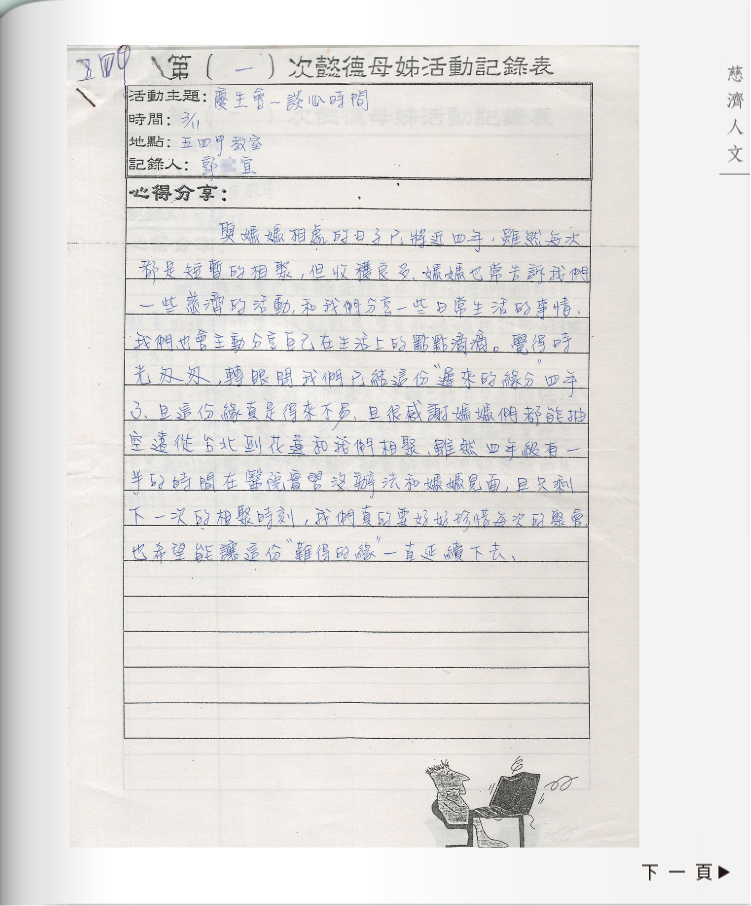 五四甲
第(一)次懿德母姊活動記錄表
活動主題:慶生會—談心時間
時間:3/11
地點:五四甲教室
記錄人:郭 宜
心得分享:
與媽媽相處的日子已將近四年,雖然每次
都是短暫的相聚,但收穫良多、媽媽也常告訴我們
一些慈濟的活動,和我們分享一些日常生活的事情、
我們也會主動分享自己在生活上的點點滴滴。覺得時
光匆匆,轉眼間我們已結這份"遲來的緣分"四年
了、且這份緣真是得來不易、且很感謝媽媽們都能抽
空遠從台北到花蓮和我們相聚,雖然四年級有一
半的時間在醫院實習沒辦法和媽媽見面,且只剩
下一次的相聚時刻,我們真的要好好珍惜每次的聚會,
也希望能讓這份"難得的緣"一直延續下去、
慈濟人文
下一頁▶